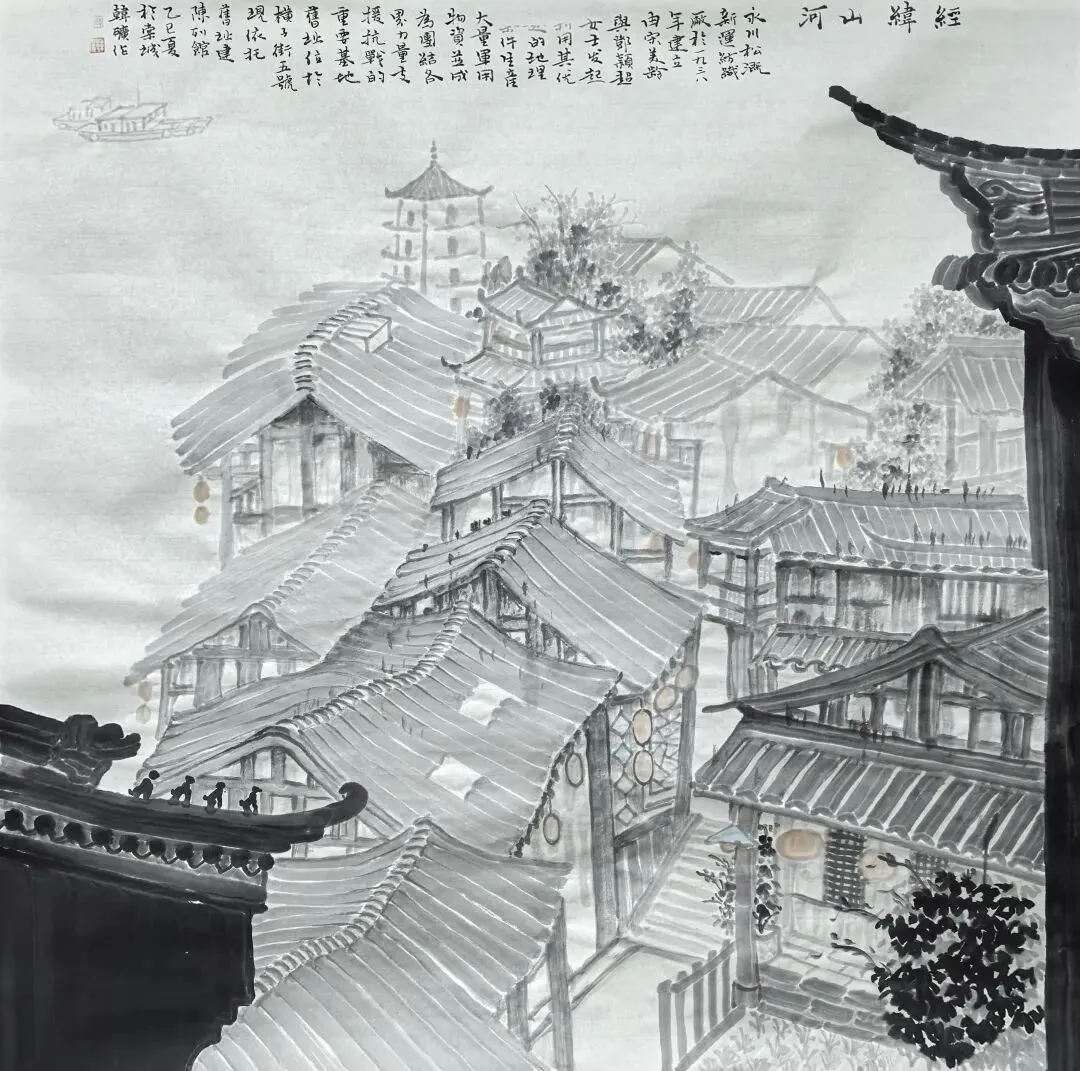 經緯山河
永川松溉
新運紡織
廠於一九三八
年建立
由宋美齡
與鄧穎超
女士发起
利用其优
越的地理
条件生産
大量軍用
物資並成
為團結各
界力量支
援抗戰的
重要基地
舊址位於
橫子街五號
現依托
舊址建
陳列館
乙巳夏
於棠城
韓曠作